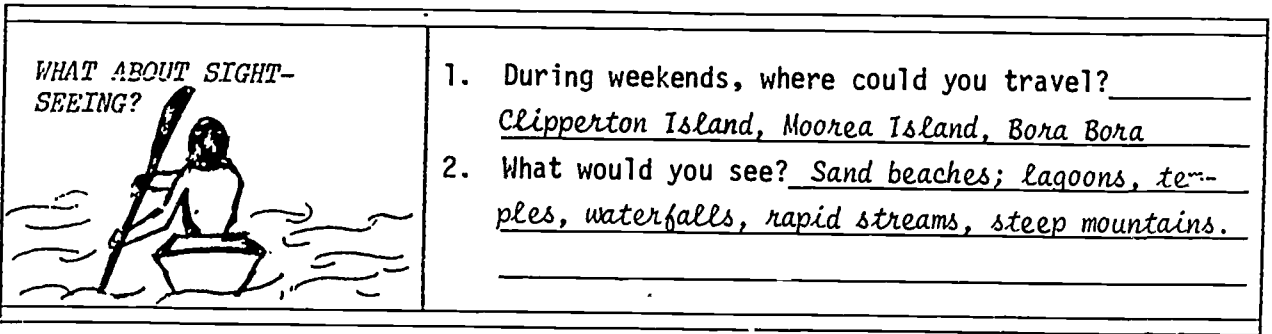 WHAT ABOUT SIGHT-
SEEING?
1. During weekends, where could you travel?
Clipperton Island, Moorea Island, Bora Bora
2. What would you see? Sand beaches; lagoons, tem-
ples, waterfalls, rapid streams, steep mountains.